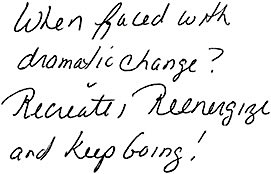 When faced with
dramatic change?
Recreate, Reenergize
and keep Going!